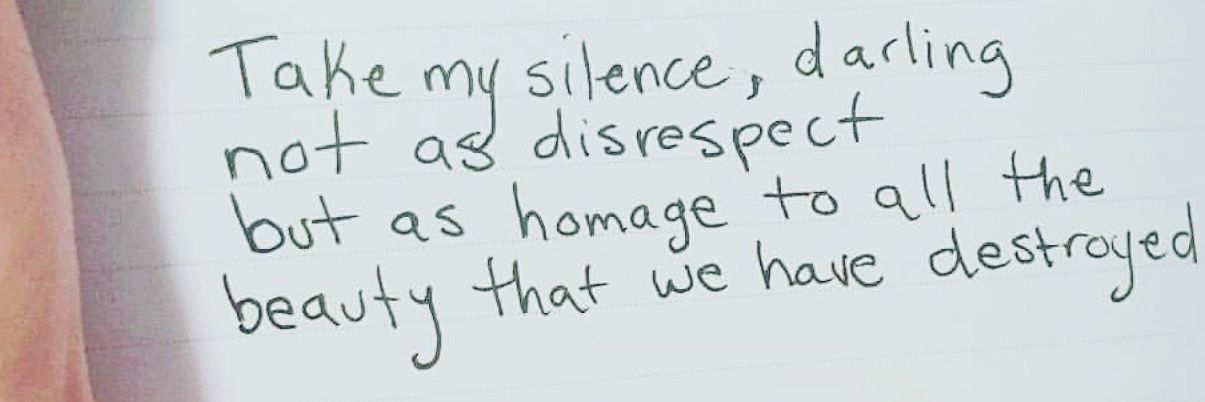 Take my silence, darling
not as disrespect
but as homage to all the
beauty that we have destroyed